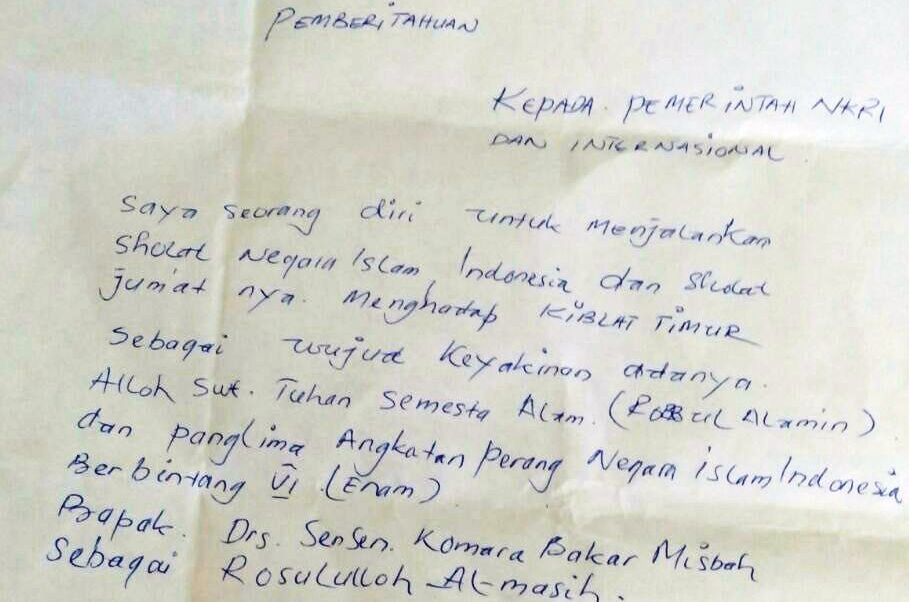 PEMBERITAHUAN
KEPADA. PEMERINTAH NKRI
DAN INTERNASIONAL
Saya seorang diri untuk menjalankan
Sholat Negara Islam Indonesia dan Sholat
jum'at nya. Menghadap KIBLAT TIMUR
Sebagai wujud Keyakinan adanya.
Alloh Swt. Tuhan Semesta Alam. (ROBBUL ALAMIN)
dan panglima Angkatan perang Negara islam Indonesia
Berbintang VI. (Enam)
Bapak. Drs. Sensen. Komara Bakar Misbah
Sebagai Rosululloh Al-masih.